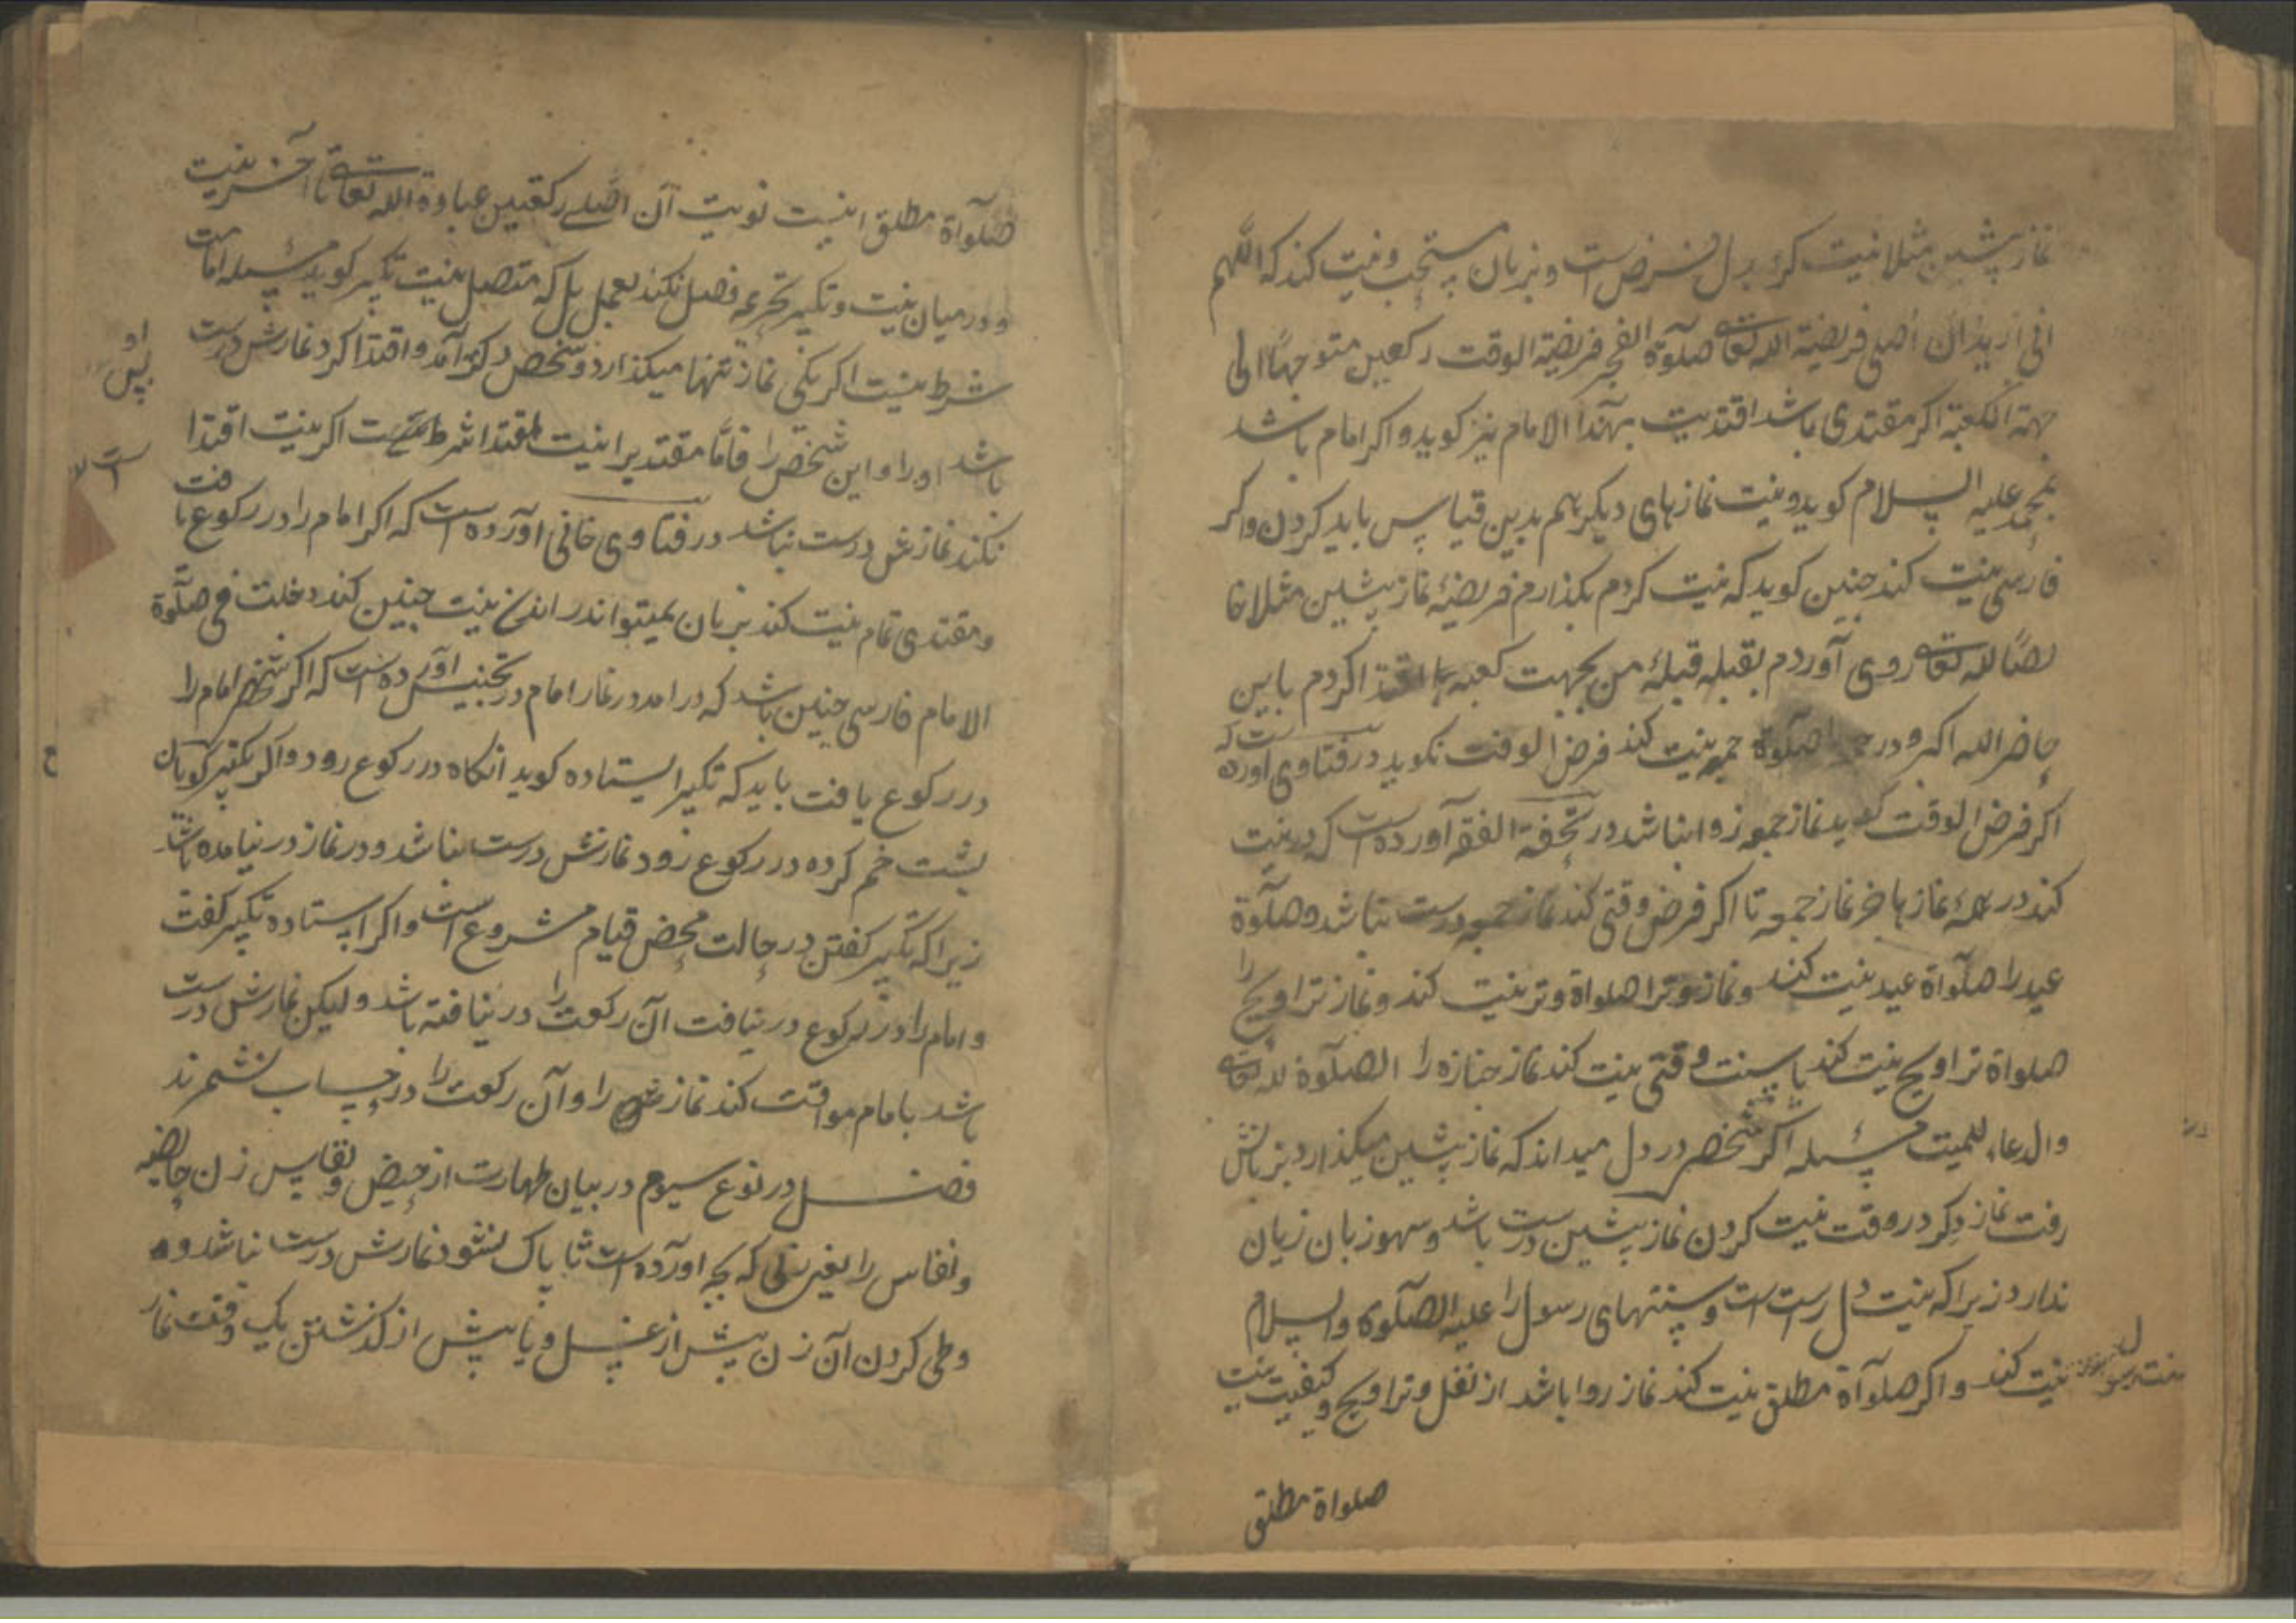 نماز پیشین مثلا نیت کردن بدل فرض است و بزبان مستحب و نیت کند که اللهم
انی ارید ان اصلی فریضة الله تعالی صلوة الفجر فریضة الوقت رکعین متوجها الی
جهة الکعبة اگر مقتدی باشد اقتدیت بهذا الامام نیز کوید و اکر امام باشد
بمحمد علیه السلام کوید و نیت نمازهای دیکر هم بدین قیاس باید کردن و اکر
فارسی نیت کند چنین کوید که نیت کردم بکذارم فریضهٔ نماز پیشین مثلا خا
لصا لله تعالی روی آوردم بقبله قبلهٔ من بجهت کعبه اقتدا کردم باین
حاضر الله اکبر و در صلوة جمعه نیت کند فرض الوقت نکوید در فتاوی آورده است که
اکر فرض الوقت کوید نماز جمعه روا نباشد در تحفة الفقه آورده است که در نیت
کند در همهٔ نمازها خر نماز جمعه تا اکر فرض وقتی کند نماز جمعه درست نباشد و صلوة
عید را صلوآة عید نیت کند و نماز وتر را صلواة وتر نیت کند و نماز تراویح را
صلواة تراویح نیت کند یا سنت وقتی نیت کند نماز جنازه را الصلوة لله تعالی
والدعاء للمیت مسئله اکر شخصی در دل میداند که نماز پیشین میکذارد بزبانش
رفت نماز دکر در وقت نیت کردن نماز پیشین درست باشد و سهو زبان زیان
ندارد زیراکه نیت دل راست است و سنتهای رسول را علیه الصلوة والسلام
نیت کند و اکر صلوآة مطلق نیت کند نماز روا باشد از نفل و تراویح و کیفیت نیت
سنت رسول
صلواة مطلق
صلوآة مطلق اینست نویت آن اصلے رکعتین عبادة الله تعالی تا آخر نیت
و درمیان نیت و تکبیر تحریمه فصل نکند بعمل بل که متصل نیت تکبیر کوید مسئله امامت
شرط نیست اکر یکی نماز تنها میکذارد و شخص دکر آمد و اقتدا کرد نمازش درست
باشد او را و این شخص را فاما مقتدیرا نیت اقتدا شرط است اکر نیت اقتدا
نکند نمازش درست نباشد در فتاوی خانی آورده است که اکر امام را در رکوع یافت
و مقتدی تمام نیت کند بزبان نمیتواند نیت چنین کند دخلت فی صلوة
الامام فارسی چنین باشد که درامد در نماز امام در تجنیس آورده است که اکر شخصی امام را
در رکوع یافت باید که تکبیر ایستاده کوید آنکاه در رکوع رود و اکر تکبیر کویان
پشت خم کرده در رکوع رود نمازش درست نباشد و در نماز در نیامده باشد
زیراکه تکبیر کفتن در حالت محض قیام مشروع است و اکر ایستاده تکبیر کفت
و امام را در رکوع در نیافت آن رکعت را در نیافته باشد و لیکن نمازش درست
باشد با امام موافقت کند نمازش را و آن رکعت را در حساب نشمرند
فصل در نوع سیوم در بیان طهارت از حیض و نفاس زن حایضه
و نفاس را یعنی زنی که بچه آورده است تا پاک نشود نمازش درست نباشد و
وطی کردن آن زن پیش از غسل و یا پیش از کذشتن یک وقت نماز
او
پس
است